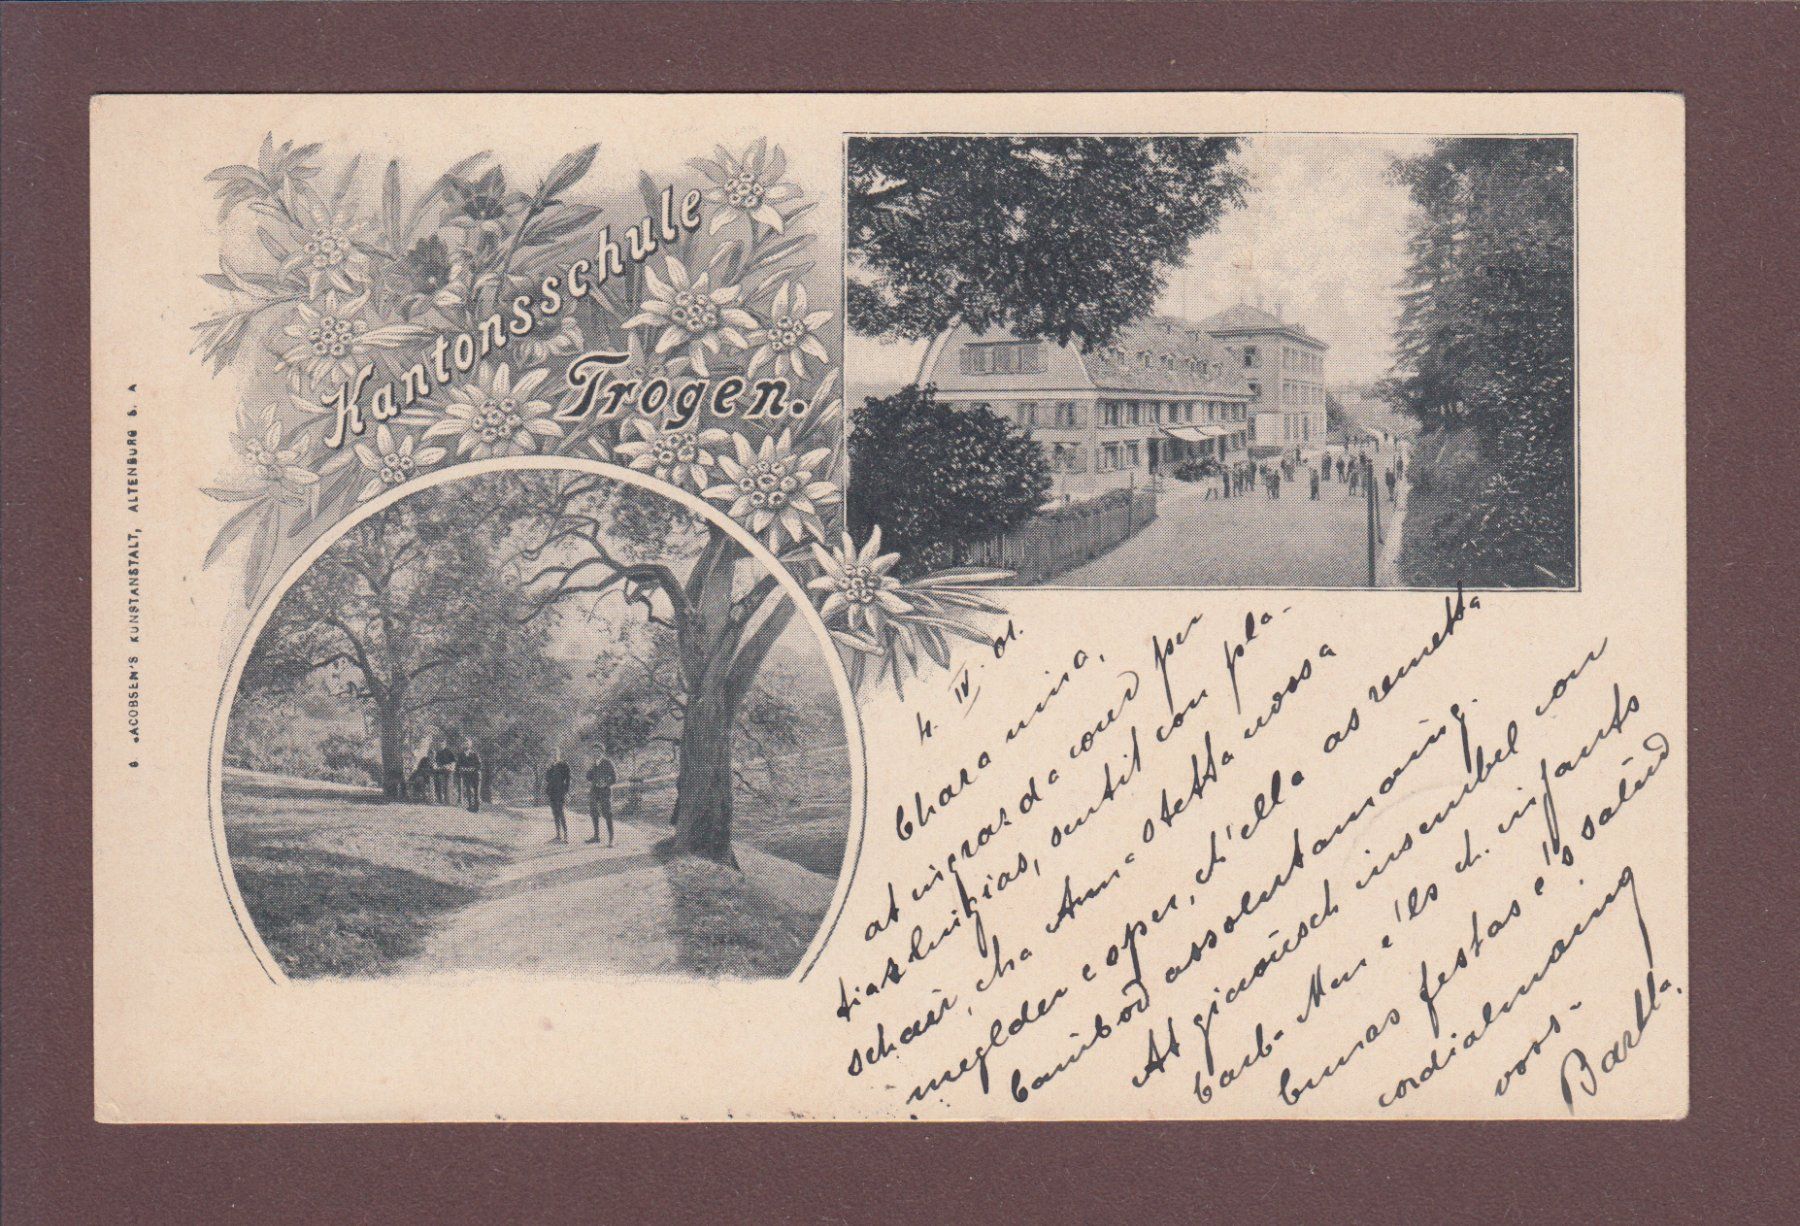 Kantonsschule
Trogen.
JACOBSEN'S KUNSTANSTALT, ALTENBURG S. A
4. IV. 01.
Chara mia,
at ingrazda cour per
tias lingias, sentit con pla-
schair, cha Anna stetta uossa
meglder e sper, ch'ella as remetta
bainbod assolutamaing.
At giavüsch insembel con
barba e'ls ch. infants
bunas festas e's salüd
cordialmaing
voss